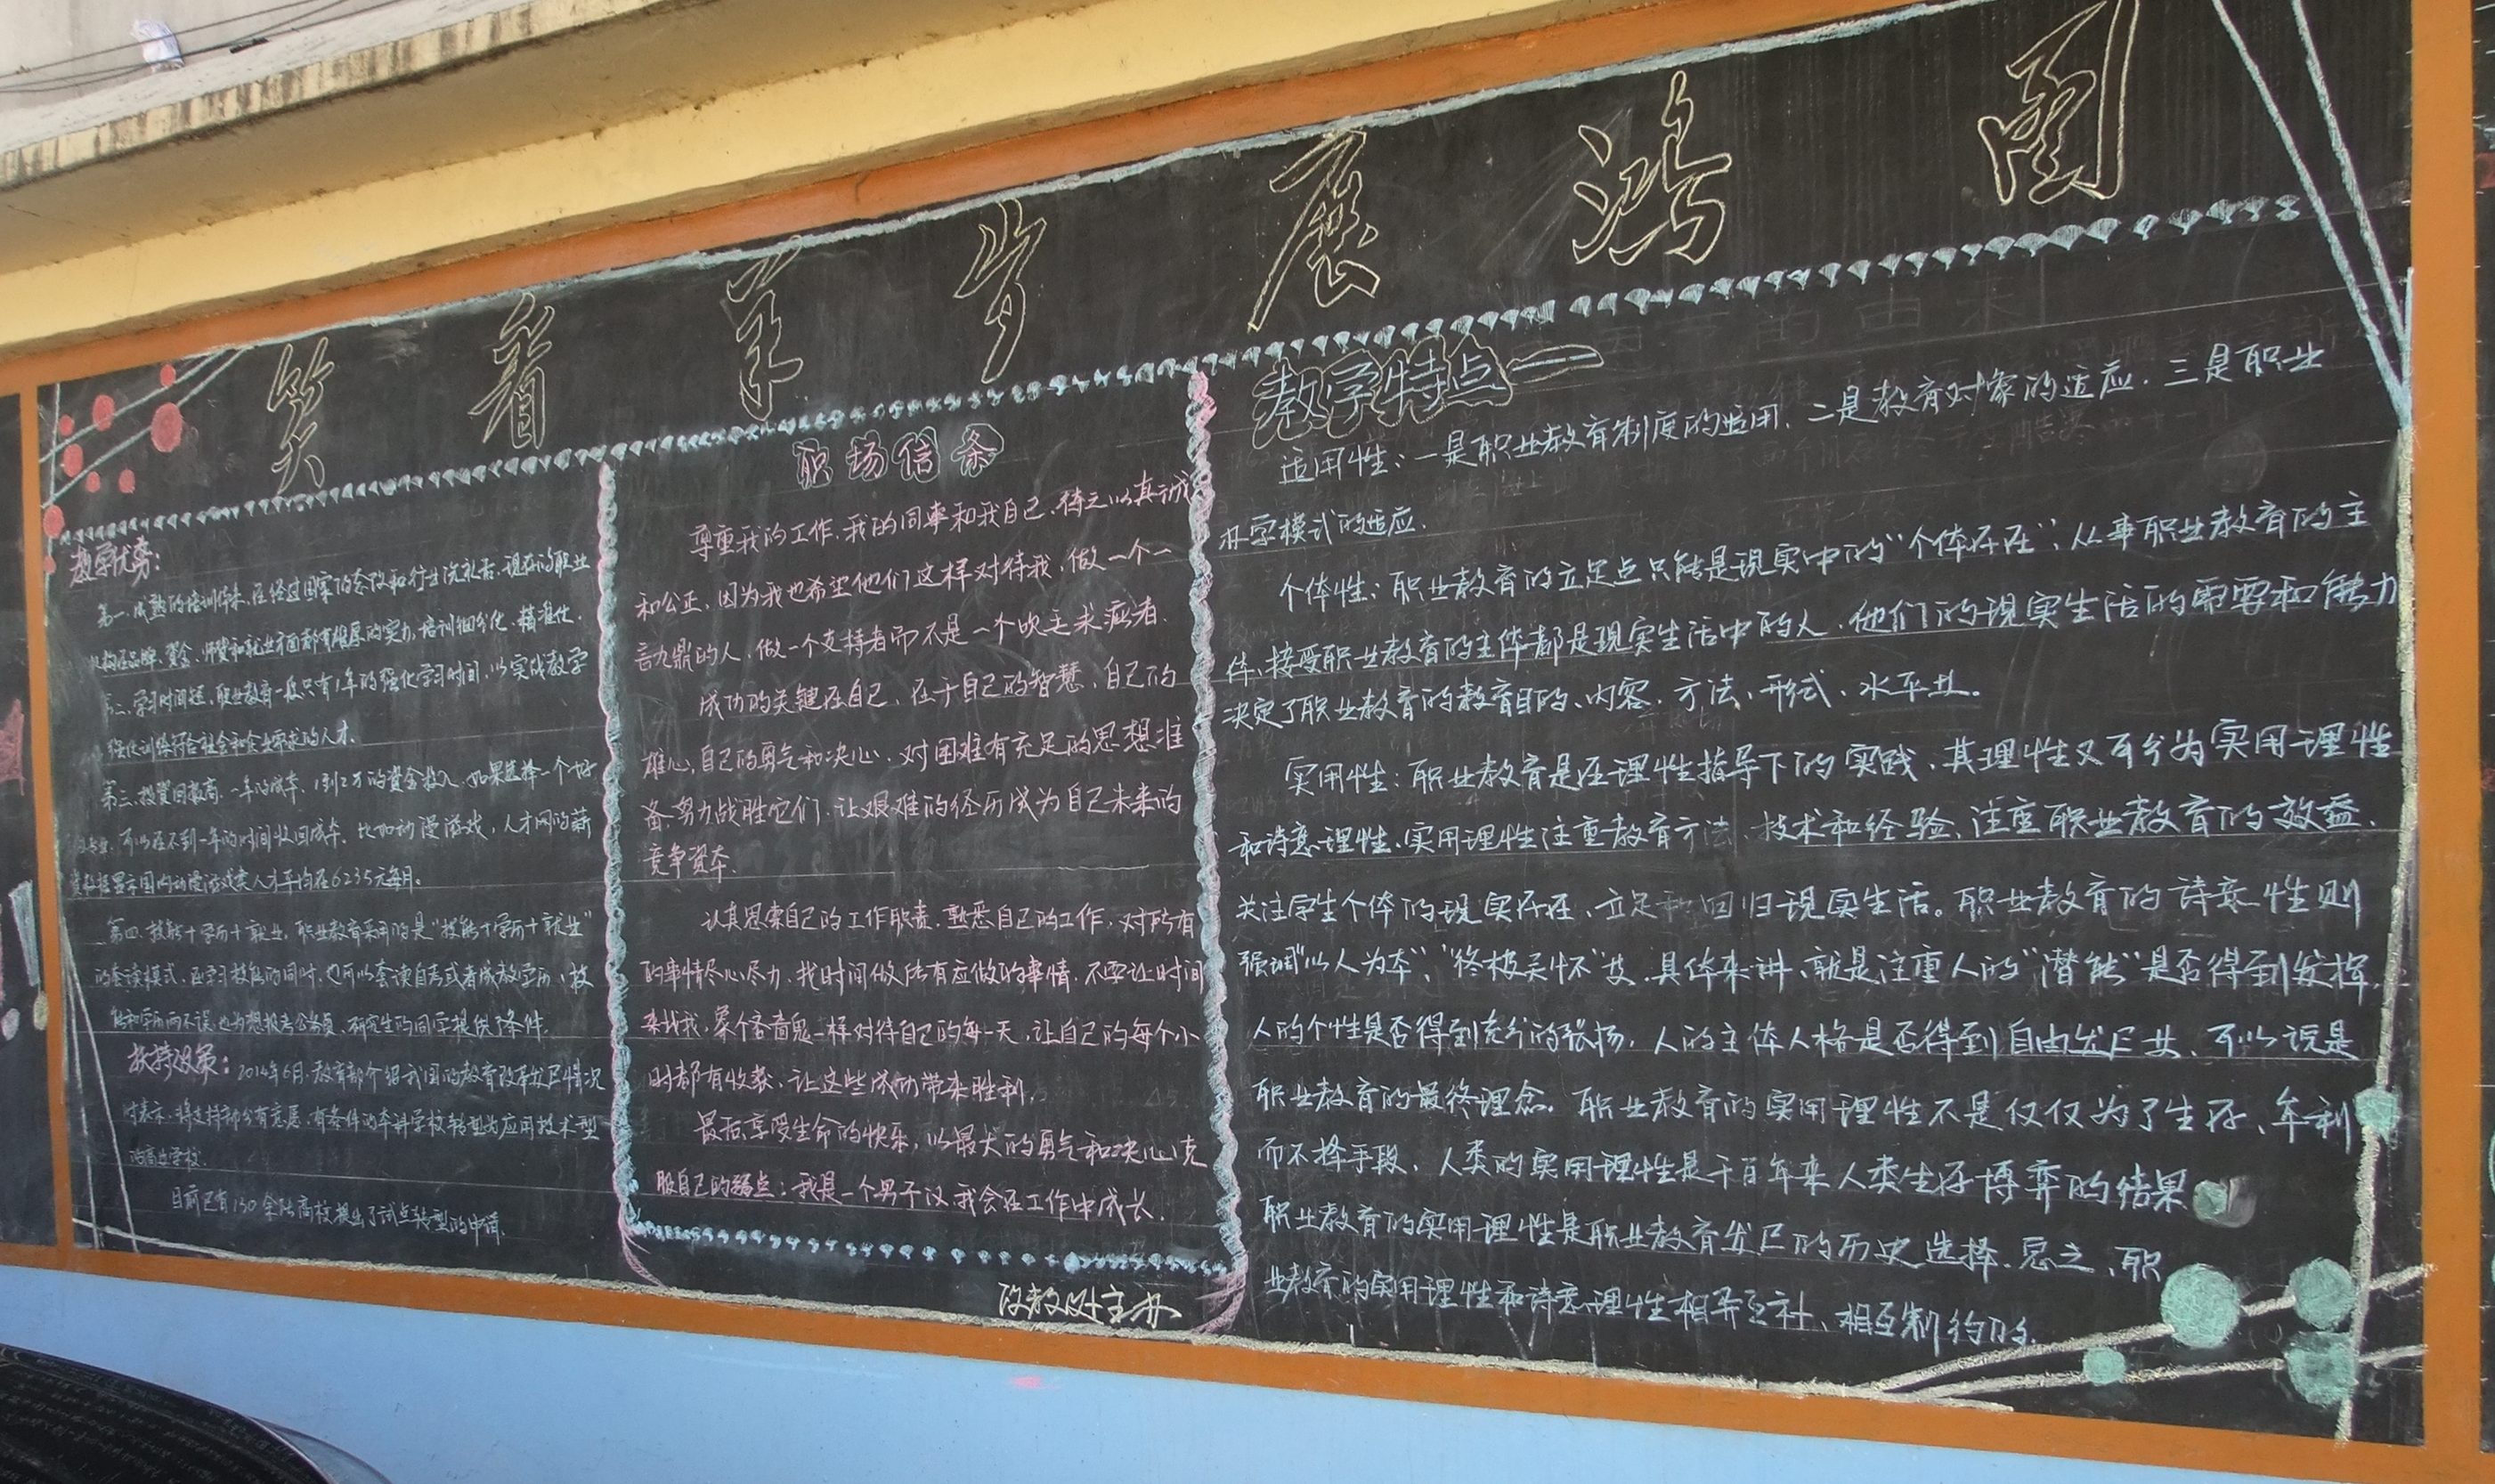 笑看羊岁展鸿图
教学优势:
第一.成熟的培训体系.在经过国家的态改和行业洗礼后.现在的职业
机构在品牌、资金、师资和就业方面都有雄厚的实力.培训细分化、精准化.
第二.学习时间短.职业教育一般只有1年的强化学习时间.以实战教学
强化训练符合社会和企业需求的人才.
第三.投资回报高.一年的成本.1到2万的资金投入.如果选择一个好
专业.可以在不到一年的时间收回成本.比如动漫游戏,人才网的薪
资数据显示国内动漫游戏类人才平均在6235元每月。
第四.技能+学历+就业.职业教育采用的是"技能+学历+就业"
的套读模式.在学习技能的同时.也可以套读自考或者成教学历、技
能和学历两不误.也为想报考公务员、研究生的同学提供了条件.
扶持政策:2014年6月.教育部介绍我国的教育改革发展情况
时表示.将支持部分有意愿、有条件的本科学校转型为应用技术型
的高业学校.
目前已有130余所高校提出了试点转型的申请.
职场信条
尊重我的工作.我的同事和我自己.待之以真诚
和公正.因为我也希望他们这样对待我.做一个一
言九鼎的人.做一个支持者而不是一个吹毛求疵者.
成功的关键在自己.在于自己的智慧、自己的
雄心.自己的勇气和决心.对困难有充足的思想准
备.努力战胜它们.让艰难的经历成为自己未来的
竞争资本.
认真思索自己的工作职责.熟悉自己的工作,对所有
的事情尽心尽力.找时间做所有应做的事情.不要让时间
来找我,象个吝啬鬼一样对待自己的每一天,让自己的每个小
时都有收获.让这些成功带来胜利.
最后享受生命的快乐,以最大的勇气和决心克
服自己的弱点:我是一个男子汉.我会在工作中成长.
政教处主办
教学特点一
适用性:一是职业教育制度的适用.二是教育对象的适应.三是职业
办学模式的适应.
个体性:职业教育的立足点只能是现实中的"个体存在":从事职业教育的主
体、接受职业教育的主体都是现实生活中的人.他们的现实生活的需要和能力
决定了职业教育的教育目的、内容.方法、形式、水平业。
实用性:职业教育是在理性指导下的实践、其理性又可分为实用理性
和诗意理性.实用理性注重教育方法、技术和经验、注重职业教育的效益、
关注学生个体的现实存在、立足和回归现实生活。职业教育的诗意性则
强调"以人为本"、"终极关怀"艺.具体来讲、就是注重人的"潜能"是否得到发挥.
人的个性是否得到充分的张扬,人的主体人格是否得到自由发展艺、可以说是
职业教育的最终理念.职业教育的实用理性不是仅仅为了生存、牟利
而不择手段、人类的实用理性是千百年来人类生存博弈的结果
职业教育的实用理性是职业教育发展的历史选择.总之、职
业教育的实用理性和诗意理性相异互补、相互制约的.